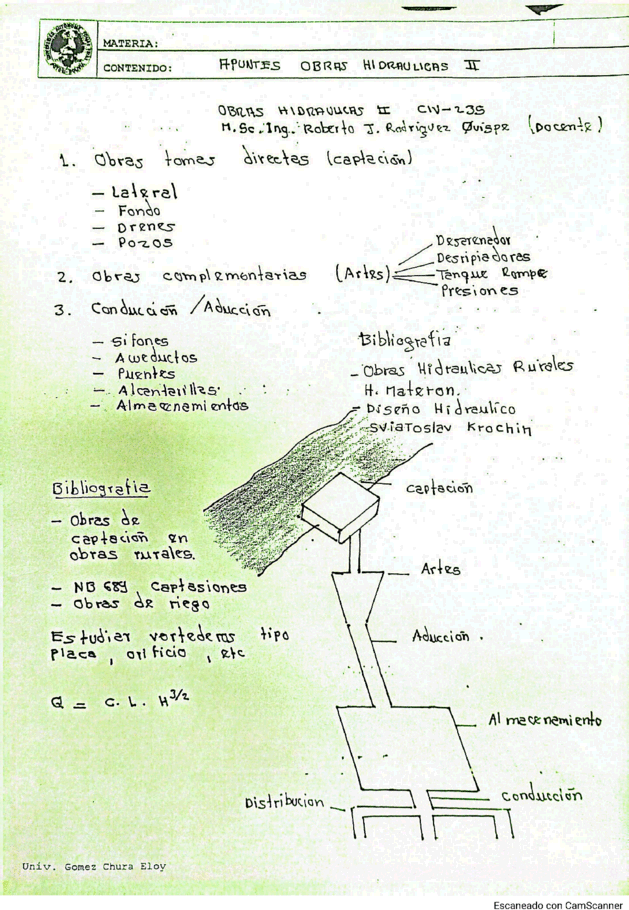 MATERIA:
CONTENIDO: APUNTES OBRAS HIDRAULICAS II
OBRAS HIDRAULICAS II CIV-235
M.Sc. Ing. Roberto J. Rodriguez Quispe (Docente)
1. Obras tomas directas (captación)
- Lateral
- Fondo
- Drenes
- Pozos
2. Obras complementarias (Artes)
Desarenador
Desripiadoras
Tanque Rompe
Presiones
3. Conducción /Aducción
- Sifones
- Aweductos
- Puentes
- Alcantarillas
- Almacenamientos
Bibliografia
- Obras Hidraulicas Rurales
H. Materon.
- Diseño Hidraulico
Sviatoslav Krochin
Bibliografia
- Obras de
captación en
obras rurales.
- NB 689, Captasiones
- Obras de riego
Estudiar vertederos tipo
Placa, orificio, etc
Q = C. L. H^3/2
captación
Artes
Aducción.
Almacenamiento
Conducción
Distribucion
Univ. Gomez Chura Eloy
Escaneado con CamScanner